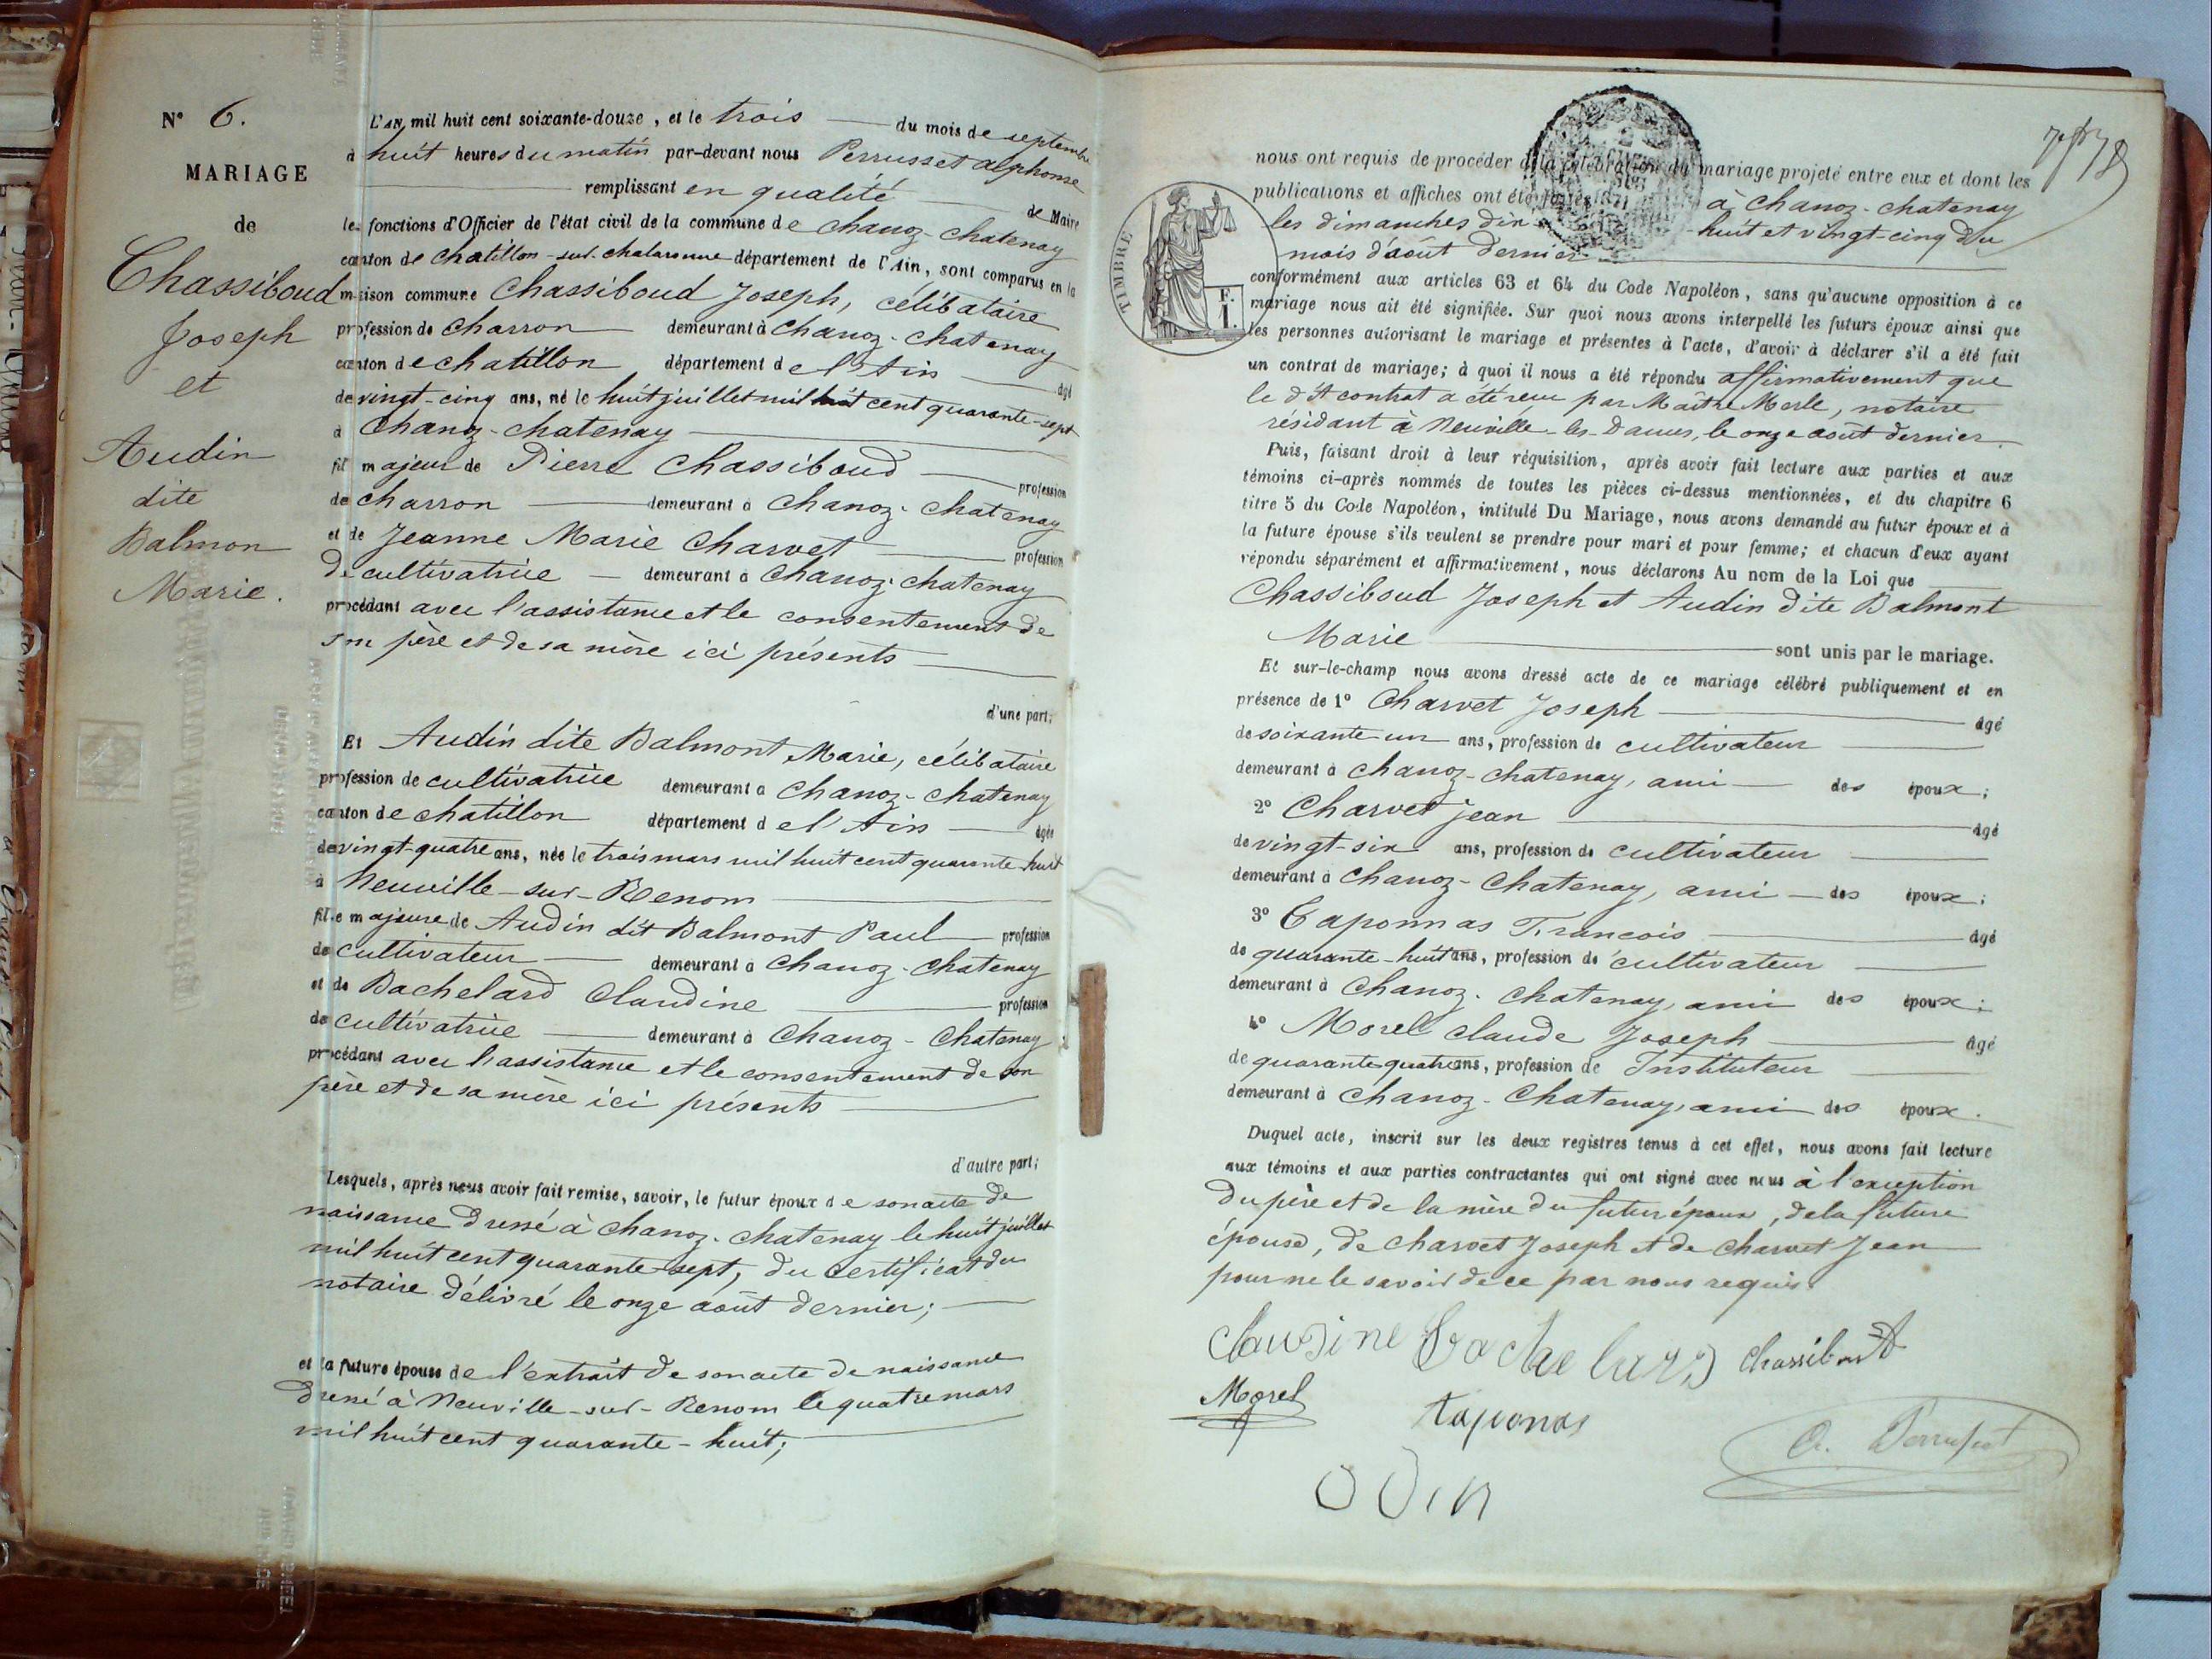 N° 6.
MARIAGE
de
Chassiboud
Joseph
et
Audin
dite
Balmon
Marie.
L'AN mil huit cent soixante-douze, et le trois du mois de septembre
à huit heures du matin par-devant nous Perrusset alphonse
remplissant en qualité de Maire
les fonctions d'Officier de l'état civil de la commune de Chanoz-Chatenay
canton de Chatillon-sur-chalaronne département de l'Ain, sont comparus en la
maison commune Chassiboud Joseph, célibataire
profession de charron demeurant à Chanoz-Chatenay
canton de chatillon département de l'Ain âgé
de vingt-cinq ans, né le huit juillet mil huit cent quarante-sept
à Chanoz-chatenay
fils majeur de Pierre Chassiboud profession
de charron demeurant à Chanoz-Chatenay
et de Jeanne Marie Charvet profession
de cultivatrice demeurant à Chanoz-chatenay
procédant avec l'assistance et le consentement de
son père et de sa mère ici présents
d'une part;
Et Audin dite Balmont Marie, célibataire
profession de cultivatrice demeurant à Chanoz-chatenay
canton de chatillon département de l'Ain âgée
de vingt-quatre ans, née le trois mars mil huit cent quarante-huit
à Neuville-sur-Renom
fille majeure de Audin dit Balmont Paul profession
de cultivateur demeurant à Chanoz-Chatenay
et de Bachelard Claudine profession
de cultivatrice demeurant à Chanoz-Chatenay
procédant avec l'assistance et le consentement de son
père et de sa mère ici présents
d'autre part;
Lesquels, après nous avoir fait remise, savoir, le futur époux de son acte de
naissance dressé à Chanoz-chatenay le huit juillet
mil huit cent quarante-sept, du certificat du
notaire délivré le onze août dernier;
et la future épouse de l'extrait de son acte de naissance
dressé à Neuville-sur-Renom le quatre mars
mil huit cent quarante-huit;
nous ont requis de procéder à la célébration du mariage projeté entre eux et dont les
publications et affiches ont été faites à Chanoz-chatenay
les dimanches dix-huit et vingt-cinq du
mois d'août dernier
TIMBRE
F.
1.
conformément aux articles 63 et 64 du Code Napoléon, sans qu'aucune opposition à ce
mariage nous ait été signifiée. Sur quoi nous avons interpellé les futurs époux ainsi que
les personnes autorisant le mariage et présentes à l'acte, d'avoir à déclarer s'il a été fait
un contrat de mariage; à quoi il nous a été répondu affirmativement que
le dit contrat a été reçu par Maître Merle, notaire
résidant à Neuville-les-Dames, le onze août dernier.
Puis, faisant droit à leur réquisition, après avoir fait lecture aux parties et aux
témoins ci-après nommés de toutes les pièces ci-dessus mentionnées, et du chapitre 6
titre 5 du Code Napoléon, intitulé Du Mariage, nous avons demandé au futur époux et à
la future épouse s'ils veulent se prendre pour mari et pour femme; et chacun d'eux ayant
répondu séparément et affirmativement, nous déclarons Au nom de la Loi que
Chassiboud Joseph et Audin dite Balmont
Marie sont unis par le mariage.
Et sur-le-champ nous avons dressé acte de ce mariage célébré publiquement et en
présence de 1° Charvet Joseph âgé
de soixante-un ans, profession de cultivateur
demeurant à Chanoz-chatenay, ami des époux;
2° Charvet Jean âgé
de vingt-six ans, profession de cultivateur
demeurant à Chanoz-Chatenay, ami des époux;
3° Caponnas Francois âgé
de quarante-huit ans, profession de cultivateur
demeurant à Chanoz-Chatenay, ami des époux;
4° Morel claude Joseph âgé
de quarante-quatre ans, profession de Instituteur
demeurant à Chanoz-Chatenay, ami des époux.
Duquel acte, inscrit sur les deux registres tenus à cet effet, nous avons fait lecture
aux témoins et aux parties contractantes qui ont signé avec nous à l'exception
du père et de la mère du futur époux, de la future
épouse, de Charvet Joseph et de Charvet Jean
pour ne le savoir de ce par nous requis.
Claudine Bachelard Chassiboud
Morel taponas A. Perrusset
Odin